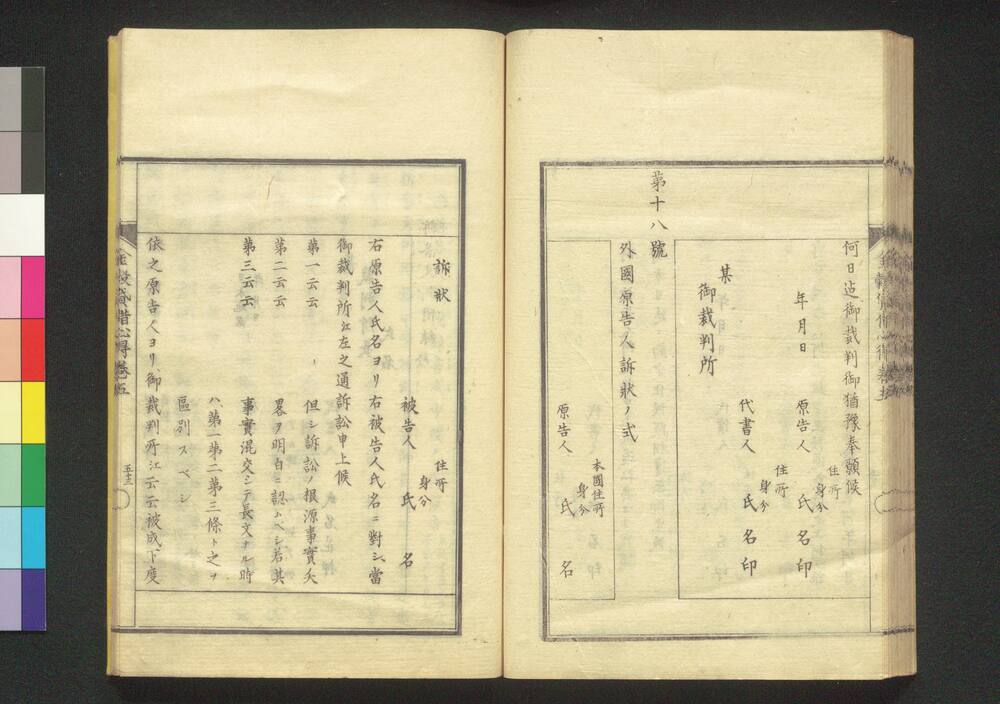 何日迠御裁判御猶豫奉願候
年月日
住所
身分
原告人 氏名印
住所
身分
代書人 氏名印
某
御裁判所
第十八號
外國原告人訴狀ノ式
本國住所
身分
原告人 氏名
訴狀
住所
身分
被告人 氏名
右原告人氏名ヨリ右被告人氏名ニ對シ當
御裁判所江左之通訴訟申上候
第一云云
但シ訴訟ノ根源事實
第二云云
畧ヲ明白ニ認ムベシ若其
第三云云
事實混交シテ長文ナル時
ハ第一第二第三條ト之ヲ
區別スベシ
依之原告人ヨリ御裁判所江云云被成下度
五十三